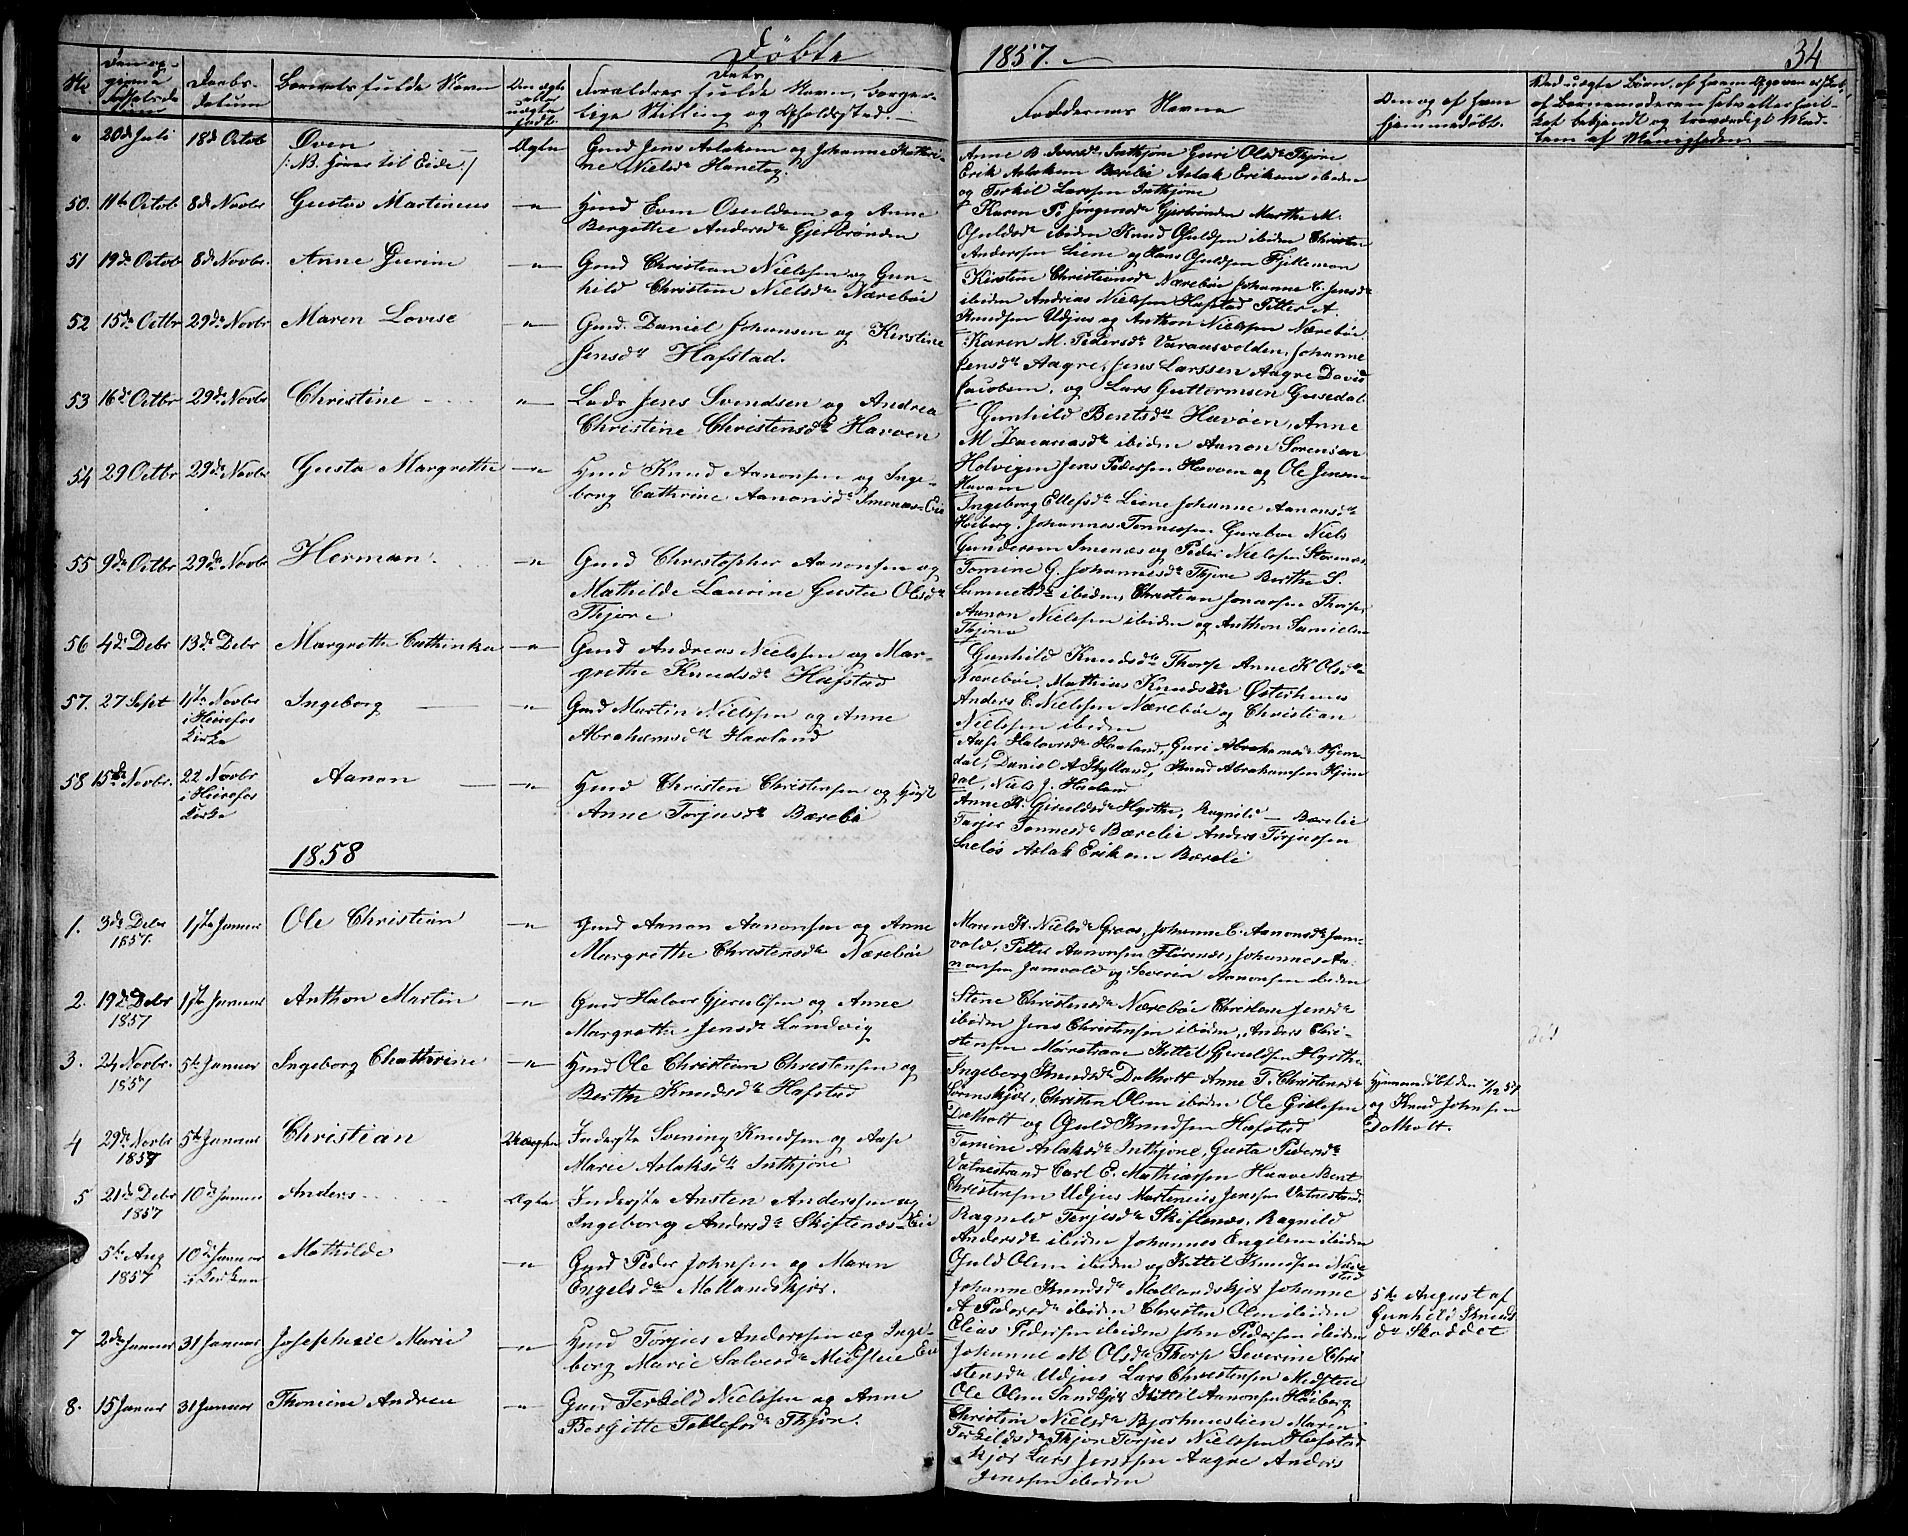 Døbte
1857.
34
No
Den op-
givne
Fødselsda
tum
Daabs-
datum
Barnets fulde Navn
Om ægte
eller
uægte
født.
Forældres fulde Navn, borger-
lige Stilling og Opholdssted.
Faddernes Navne
Om og af hvem
hjemmedøbt.
" 20de Juli 18de Octob Øven Ægte Gmd Jens Aslaksen og Johanne Kathri-
/: NB. hører til Eide :/ ne Nielsdr Hanetog.
Anne B. Iversdr Inthjøre Guri Olsdr Thjøre
Erik Aslaksen Bærelie Aslak Eriksen ibiden
og Terkil Larssen Inthjøre
50. 11te Octob 8de Novbr Gustav Martineus —"— Hmd Even Osuldsen og Anne
Bergethe Andersdr Gjerbrønden
Karen P. Jørgensdr Gjerbrønden Marthe M.
Osuldsdr ibiden Knud Osuldsen ibiden Christen
Anderssen Liene og Hans Osuldsen Fjeldemon
51 19de Octob 8de Novbr. Anne Gurine —"— Gmd Christian Nielssen og Gun-
hild Christine Nielsdr Nærebøe
Kirstine Christiansdr Nærebøe Johanne C. Jensdr
ibiden Andreas Nielssen Hafstad Petter A.
Knudsen Udjus og Anthon Nielssen Nærebøe
52 15de Octbr 29de Novbr Maren Lovise —"— Gmd. Daniel Johansen og Kirstine
Jensdr Hafstad.
Karen M. Pedersdr Varaasvolden, Johanne
Jensdr Aagre, Jens Larssen Aagre David
Jacobsen, og Lars Guttormsen Gusedal
53 16de Octbr 29de Novbr Christine —"— Lods Jens Svendsen og Andrea
Christine Christensdr Havøen
Gunhild Bentsdr Havøen, Anne
M Zacariasdr ibiden Aanon Sørensen
Holvigen Jens Pedersen Havøen og Ole Jensen
Havøen
54 29 Octbr 29de Novbr Gusta Margrethe —"— Hmd Knud Aanonsen og Inge-
borg Cathrine Aanonsdr Imenæs-Eie
Ingeborg Ellefsdr Liene Johanne Aanonsdr
Høiberg, Johannes Tønnessen Gurebøe Niels
Gundersen Imenæs og Peder Nielssen Stoenes
55 9de Octbr 29de Novbr Herman. —"— Gmd Christopher Aanonsen og
Mathilde Laurine Gustu Olsdr
Thjøre
Tomine G. Johannesdr Thjøre Berthe S.
Samuelsdr ibiden, Christian Jonassen Thorp,
Aanon Nielssen ibiden og Anthon Samuelsen
Thjøre
56 4de Debr 13de Debr Margrethe Cathinka —"— Gmd Andreas Nielssen og Mar-
grethe Knudsdr Hafstad
Gunhild Knudsdr Thorp Anne K Olsdr
Nærebøe, Mathias Knudsen Østerhuus
Anders C. Nielssen Nærebøe og Christian
Nielssen ibiden
57. 27 Sept 1ste Novbr
i Heirefos
Kirke Ingeborg —"— Gmd Martin Nielssen og Anne
Abrahamsdr Haaland
Aase Halvorsdr Haaland, Guri Abrahamsdr Hjem-
dal, Daniel A Skylland, Knud Abrahamsen Hjem
dal, Niels J. Haaland
58 15de Novbr. 22 Novbr
i Heirefos
Kirke Aanon —"— Hmd Christen Christensen og
Anne Torjusdr Bærebø
Anne K. Gjeruldsdr Hyrthe, Ragnild — Bærelie
Tarjer Tønnesdr Bærelie Anders Torjussen
Aslak Eriksen Bærelie
1858
1. 3de Debr
1857. 1ste Januar Ole Christian —"— Gmd Aanon Aanonsen og Anne
Margrethe Christensdr Nærebøe
Maren K. Nielsdr Groos, Johanne C. Aanonsdr Jam-
vold, Pettil Aanonsen Florenæs, Johannes Aa-
nonsen Jamvold og Severin Aanonsen ibiden
2. 19de Debr
1857 1ste Januar Anthon Martin —"— Gmd Halvor Gjeruldsen og Anne
Margrethe Jensdr Landvig
Stene Christensdr Nærebøe Christense Jensdr
ibiden Jens Christensen ibiden, Anders Chri-
stensen Kittil Gjeruldsen Hyrthe
3. 24 Novbr.
1857 5te Januar Ingeborg Chathrine —"— Hmd Ole Christian Christensen og
Berthe Knudsdr Hafstad
Ingeborg Knudsdr Dolholt Anne T. Christensdr
Sørenskjær, Christen Olsen ibiden Ole Gislesen
Dolholt og Osuld Knudsen Hafstad
Hjemmedøbt den 7/12 57
og Knud Johnsen
Dolholt.
4 29de Novbr
1857 5te Januar Christian Uægte Inderste Svening Knudsen og Aase
Marie Aslaksdr Inthjøre
Tomine Aslaksdr Inthjøre, Gusta Pedersdr
Vatnestrand Carl E. Mathiassen Haave Bent
Christensen Udjus Martenius Jenssen Vatnestrand
5 21de Debr
1857 10de Januar Anders Ægte Inderste Ansten Anderssen og
Ingeborg Andersdr Skiftenæs-Eie
Ragnild Terjesdr Skiftenæs, Ragnild
Andersdr ibiden Johannes Engelsen ibiden
Osuld Olsen ibiden og Kittil Knudsen
5te Aug
1857 10de Januar
i Kirken Mathilde —"— Gmd Peder Johnsen og Maren
Engelsdr Mollandskjær.
Johanne Knudsdr Mollandskjær Johanne
A Pedersdr ibiden Christen Olsen ibiden
Elias Pedersen ibiden John Pedersen ibiden
5te August af
Gunhild Knuds
dr Skoddet
7 2de Januar 31 Januar Josephine Marie —"— Hmd Torjus Anderssen og Inge-
borg Marie Salvesdr Midtlie Eie
Johanne M. Olsdr Thorp Severine Chri-
stensdr Udjus Lars Christensen Midtlie
Ole Olsen Sandkjær Kittil Aanonsen Høiberg
8. 15 Januar 31 Januar Thomine Andrea —"— Gmd Terkild Nielssen og Anne
Birgitte Tellefsdr Thjøre.
Christine Nielsdr Bjorhuuslien Maren
Terkildsdr Thjøre Torjus Nielssen Hafstad
kjær Lars Jenssen Aagre Anders
Jenssen ibiden